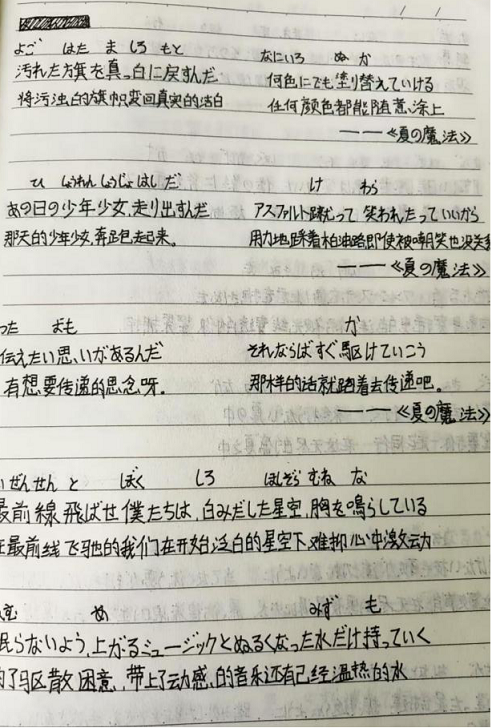 よご はた ま しろ もと なにいろ ぬ か
汚れた方旗を真っ白に戻すんだ 何色にでも塗り替えていける
将污浊的旗帜变回真实的洁白 任何颜色都能随意涂上
——《夏の魔法》
ひ しょうねん しょうじょ はし だ け わら
あの日の少年少女,走り出すんだ アスファルト蹴って 笑われたっていいから
那天的少年少女,奔跑起来。 用力地踩着柏油路即使被嘲笑也没关系
——《夏の魔法》
った おも か
伝えたい思いがあるんだ それならばすぐ駆けていこう
有想要传递的思念呀. 那样的话就跑着去传递吧。
——《夏の魔法》
いぜんせん と ぼく しろ ほしぞら むね な
最前線 飛ばせ 僕たちは,白みだした星空,胸を鳴らしている
在最前线飞驰的我们在开始泛白的星空下,难抑心中激动
め みず も
眠らないよう,上がるミュージックとぬるくなった水だけ持っていく
的了驱散困意,带上了动感,的音乐还有已经温热的水